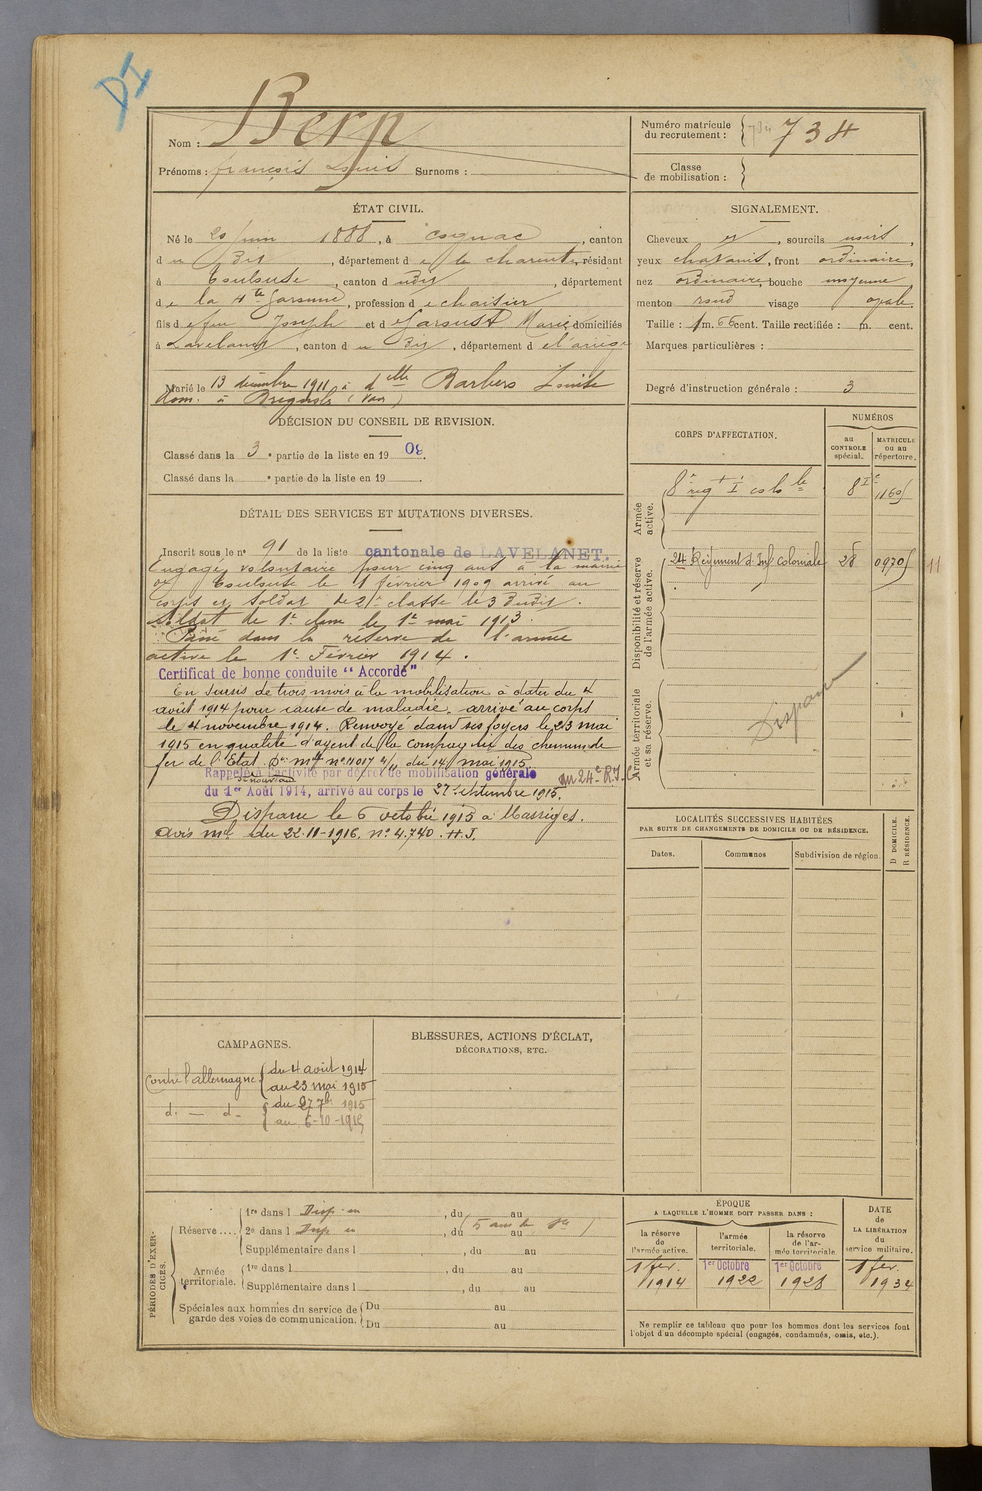 DI
Nom : Berp
Prénoms : françois Louis Surnoms :
Numéro matricule
du recrutement : 734
Classe
de mobilisation :
ÉTAT CIVIL.
Né le 20 juin 1888, à Cognac, canton
du dit, département de la charente, résidant
à toulouse, canton dudit, département
de la Hte Garonne, profession de chaisier
fils de feu Joseph et d Marie domiciliés
à Lavelanet, canton du dit, département de l'ariège
Marié le 13 décembre 1911 à delle Barbero Louise
dom. à Brignoles (Var)
SIGNALEMENT.
Cheveux et, sourcils noirs,
yeux chatains, front ordinaire,
nez ordinaire, bouche moyenne
menton rond visage ovale.
Taille : 1m. 66 cent. Taille rectifiée : m. cent.
Marques particulières :
Degré d'instruction générale : 3
DÉCISION DU CONSEIL DE REVISION.
Classé dans la 3e partie de la liste en 1909.
Classé dans la e partie de la liste en 19 .
DÉTAIL DES SERVICES ET MUTATIONS DIVERSES.
Inscrit sous le n° 91 de la liste cantonale de LAVELANET.
Engagé volontaire pour cinq ans à la mairie
de toulouse le 1 février 1909 arrivé au
corps et soldat de 2e classe le 3 dudit.
Soldat de 1e classe le 1er mai 1913.
Passé dans la réserve de l'armée
active le 1er Février 1914.
Certificat de bonne conduite "Accordé"
En sursis de trois mois à la mobilisation à dater du 4
août 1914 pour cause de maladie, arrivé au corps
le 4 novembre 1914. Renvoyé dans ses foyers le 23 mai
1915 en qualité d'agent de la compagnie des chemins de
fer de l'État. Don mlle n° 11017 4/11 du 14 mai 1915
Rappelé à l'activité par décret de mobilisation générale au 24e R.I.C.
à nouveau
du 1er Août 1914, arrivé au corps le 27 septembre 1915.
Disparu le 6 octobre 1915 à Massiges.
Avis mel du 22-11-1916. n° 4.740. H.J.
CORPS D'AFFECTATION.
NUMÉROS
au
CONTROLE
spécial.
MATRICULE
ou au
répertoire.
Armée
active.
8e regt I colole 8I 1160
Disponibilité et réserve
de l'armée active.
24 Régiment d'Inf Coloniale 28 0970 11
Armée territoriale
et sa réserve.
Disparu
LOCALITÉS SUCCESSIVES HABITÉES
PAR SUITE DE CHANGEMENTS DE DOMICILE OU DE RÉSIDENCE.
Dates. Communes Subdivision de région. D DOMICILE. R RÉSIDENCE.
CAMPAGNES.
Contre l'allemagne du 4 août 1914
au 23 mai 1915
d. — d- du 27 7bre 1915
au 6-10-1915
BLESSURES, ACTIONS D'ÉCLAT,
DÉCORATIONS, ETC.
PÉRIODES D'EXERCICES.
Réserve....
1re dans l Disp en, du au
2e dans l Disp en, du au
Supplémentaire dans l , du au
Armée
territoriale.
1re dans l , du au
Supplémentaire dans l , du au
Spéciales aux hommes du service de
garde des voies de communication.
Du au
Du au
ÉPOQUE
A LAQUELLE L'HOMME DOIT PASSER DANS :
la réserve
de
l'armée active.
l'armée
territoriale.
la réserve
de l'ar-
mée territoriale
DATE
de
LA LIBÉRATION
du
service militaire.
1 fev. 1er Octobre 1er Octobre 1 fev.
1914 1922 1928 1934
Ne remplir ce tableau que pour les hommes dont les services font
l'objet d'un décompte spécial (engagés, condamnés, omis, etc.).